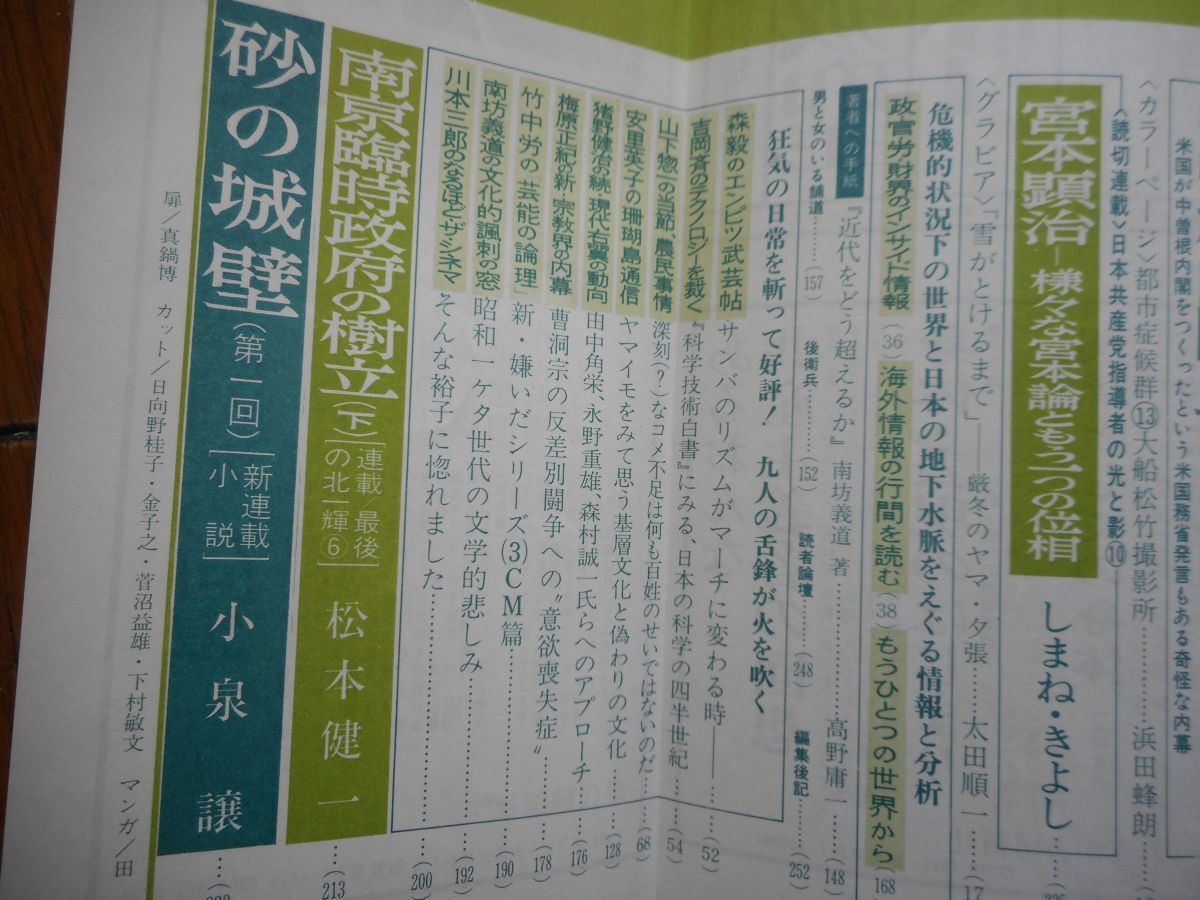 米国が中曽根内閣をつくったという米国務省発言もある奇怪な内幕
〈カラーページ〉都市症候群⑬大船松竹撮影所………浜田蜂朗
〈読切連載〉日本共産党指導者の光と影⑩
宮本顕治―様々な宮本論ともう一つの位相 しまね・きよし
〈グラビア〉「雪がとけるまで」――厳冬のヤマ・夕張――太田順一――(17
危機的状況下の世界と日本の地下水脈をえぐる情報と分析
政・官・労・財界のインサイド情報(36)海外情報の行間を読む(38)もうひとつの世界から(168
著者への手紙『近代をどう超えるか』南坊義道 著………高野庸一………(148)
男と女のいる舗道………(157) 後衛兵………(152) 読者論壇………(248) 編集後記………(252)
狂気の日常を斬って好評! 九人の舌鋒が火を吹く
森毅のエンピツ武芸帖 サンバのリズムがマーチに変わる時――(52)
吉岡斉のテクノロジーを裁く『科学技術白書』にみる、日本の科学の四半世紀……(54)
山下惣一の当節、農民事情 深刻(?)なコメ不足は何も百姓のせいではないのだ……(68)
安里英子の珊瑚島通信 ヤマイモをみて思う基層文化と偽わりの文化……(128)
猪野健治の続・現代右翼の動向 由中角栄、永野重雄、森村誠一氏らへのアプローチ……(176)
梅原正紀の新・宗教界の内幕 曹洞宗の反差別闘争への〝意欲喪失症〟……(178)
竹中労の「芸能の論理」 新・嫌いだシリーズ(3)CM篇………(190)
南坊義道の文化的諷刺の窓 昭和一ケタ世代の文学的悲しみ………(192)
川本三郎のなるほど・ザ・シネマ そんな裕子に惚れました………(200)
南京臨時政府の樹立(下)[連載/最後の北一輝⑥] 松本健一……(213)
砂の城壁(第一回)[新連載小説] 小泉 譲
扉/真鍋博 カット/日向野桂子・金子之・菅沼益雄・下村敏文 マンガ/田